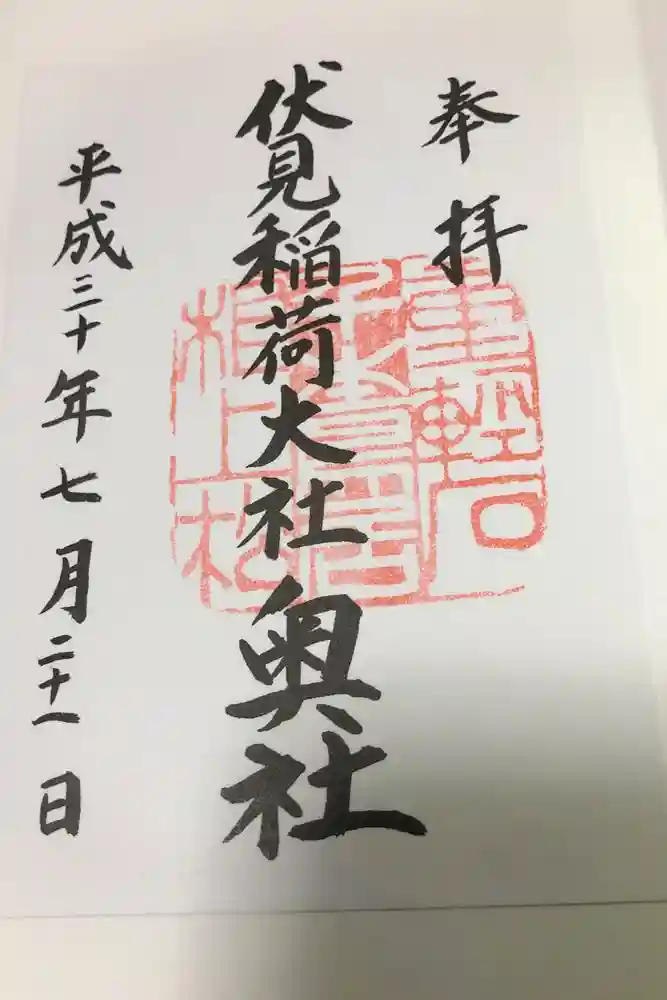 奉拝
伏見稲荷大社奥社
平成三十年七月二十一日